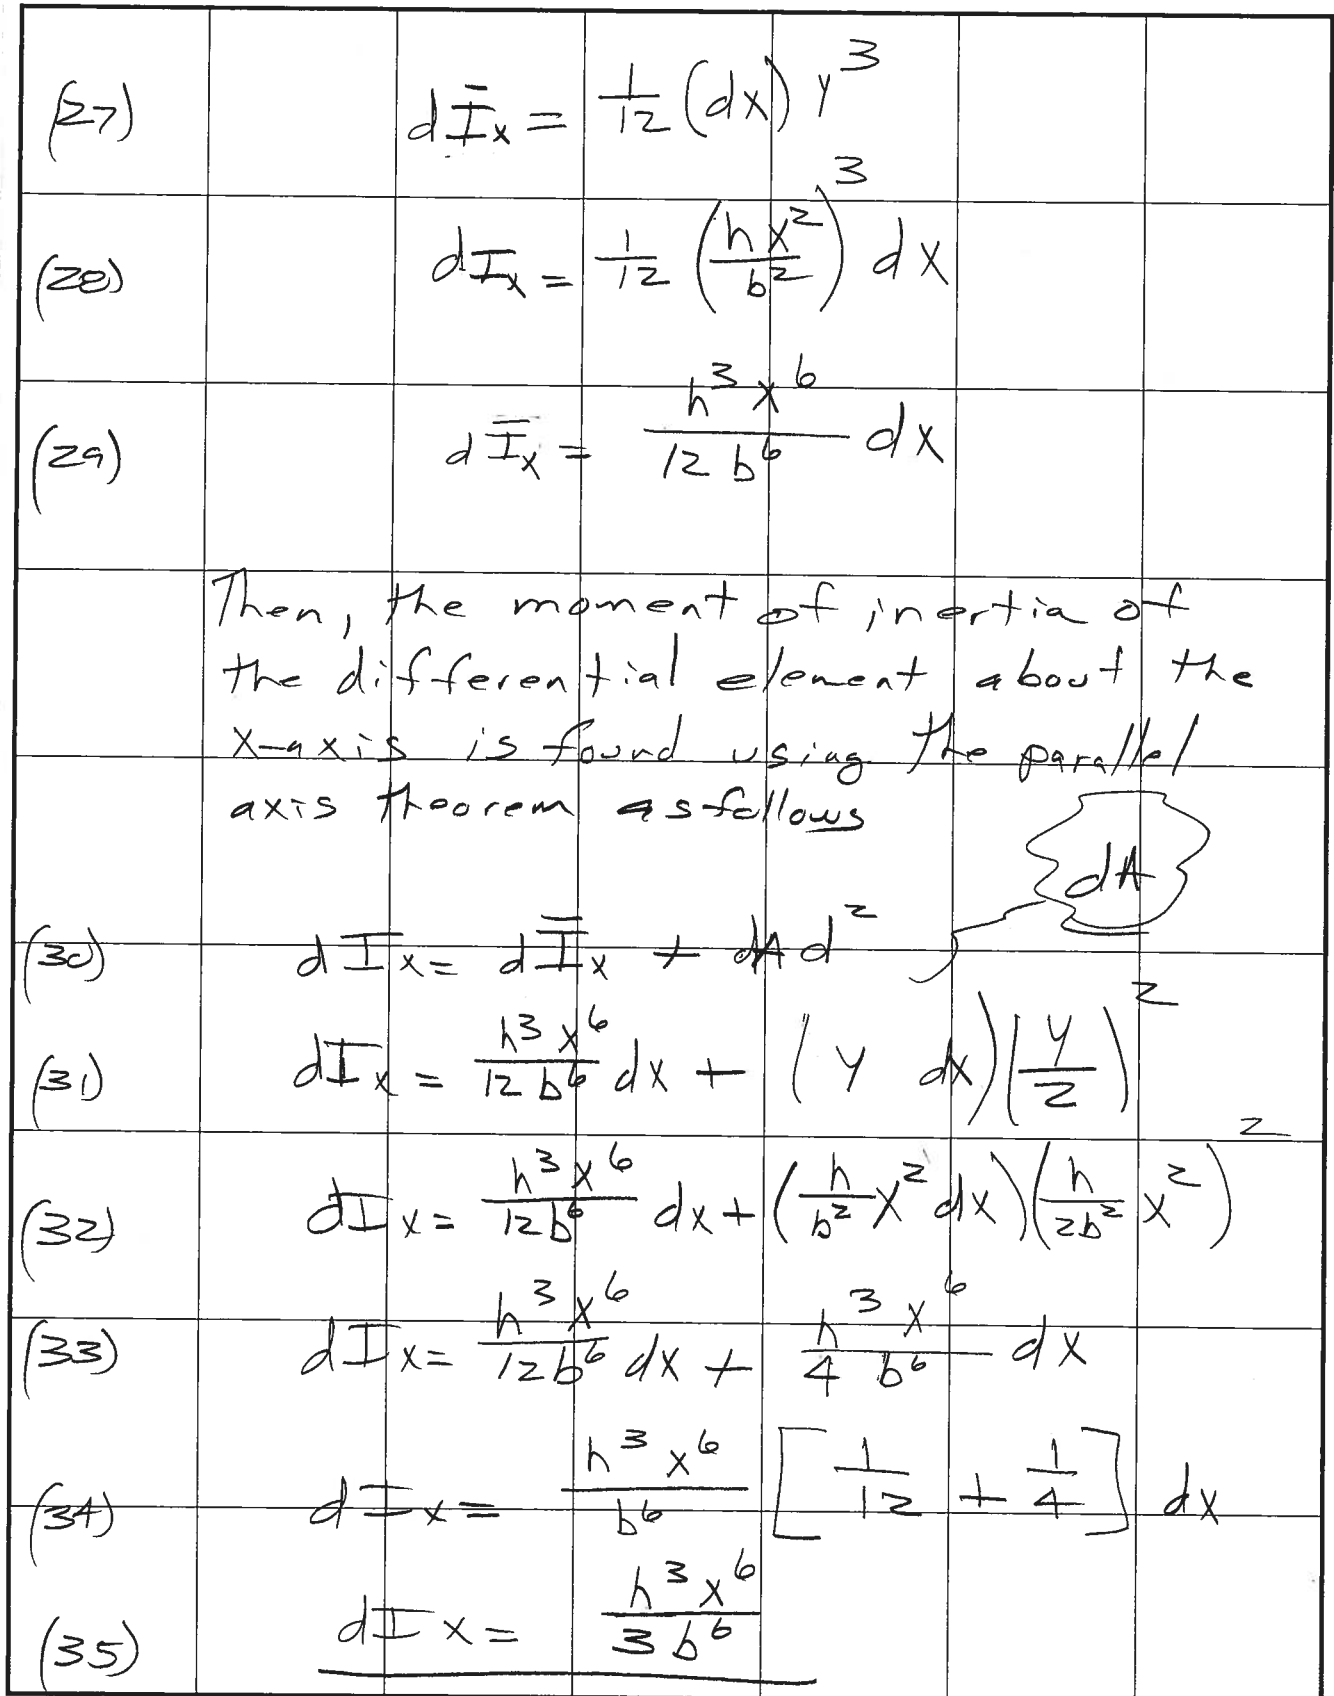 (27) dĪx = 1/12 (dx) y³
(28) dIx = 1/12 (hx²/b²)³ dx
(29) dĪx = h³x⁶/12b⁶ dx
Then, the moment of inertia of
the differential element about the
x-axis is found using the parallel
axis theorem as follows
dA
(30) dIx = dĪx + dA d²
(31) dIx = h³x⁶/12b⁶ dx + (y dx)(y/2)²
(32) dIx = h³x⁶/12b⁶ dx + (h/b² x² dx)(h/2b² x²)²
(33) dIx = h³x⁶/12b⁶ dx + h³x⁶/4b⁶ dx
(34) dIx = h³x⁶/b⁶ [1/12 + 1/4] dx
(35) dIx = h³x⁶/3b⁶